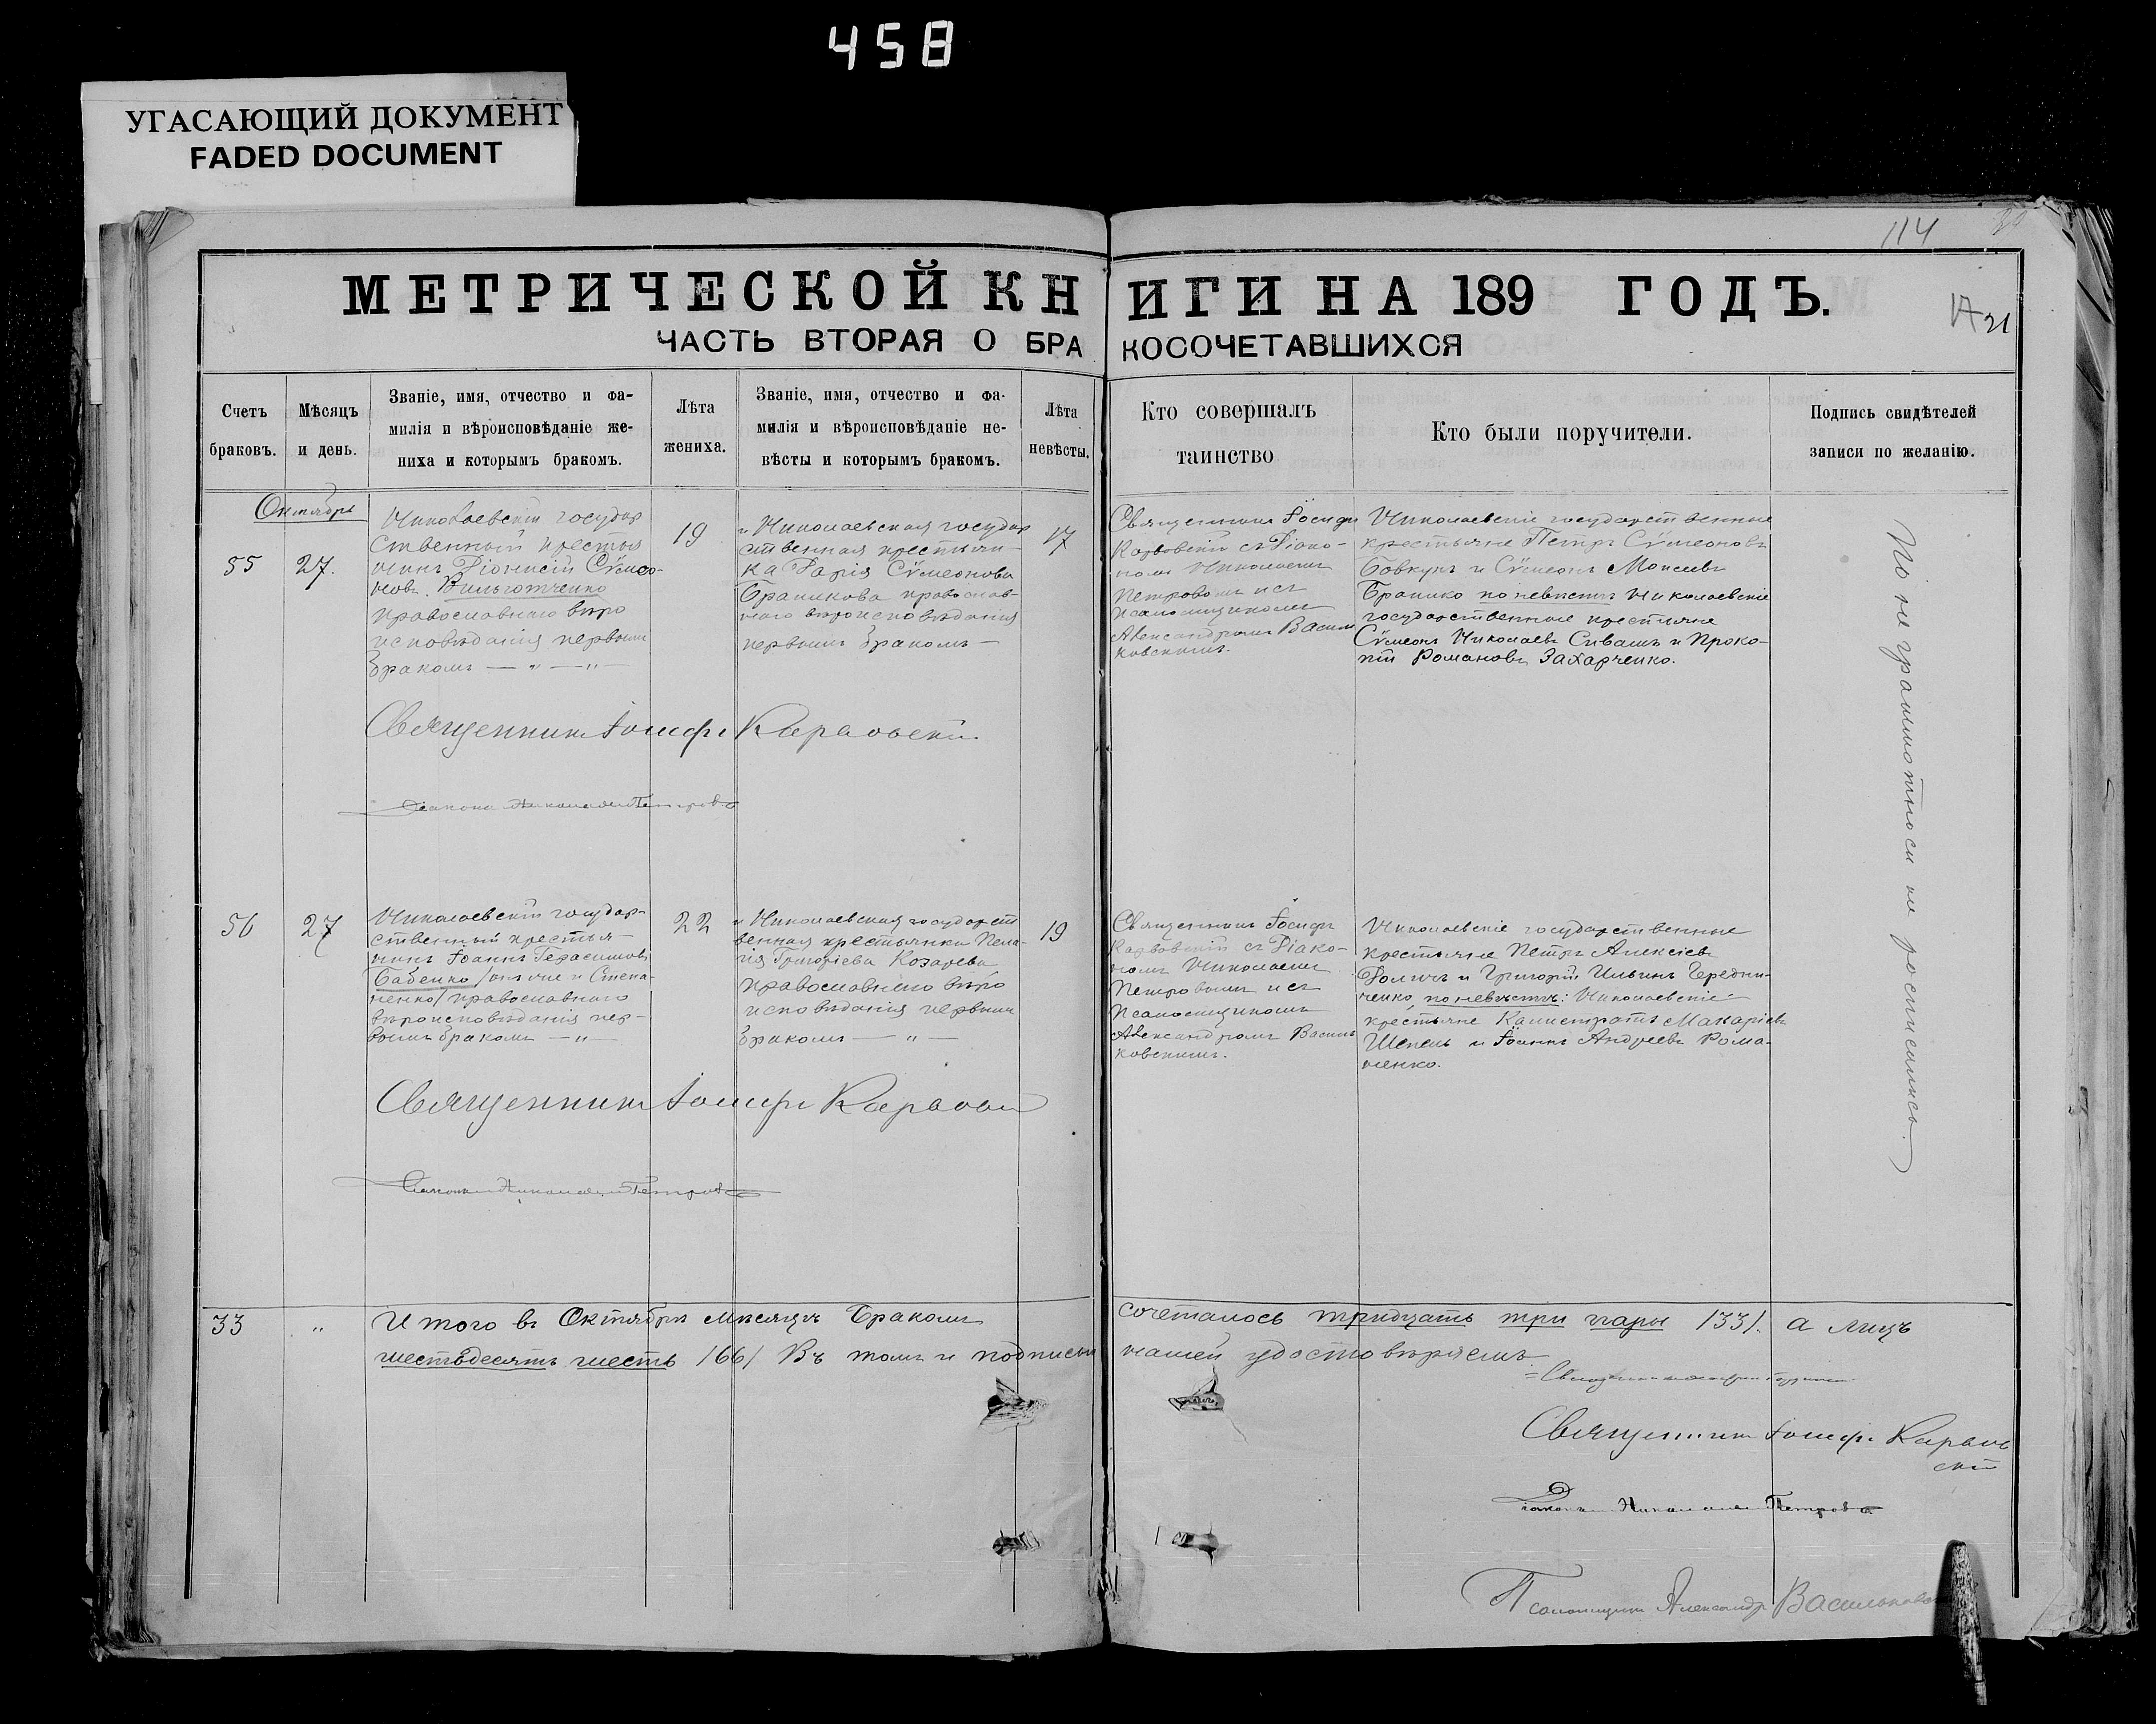 458
УГАСАЮЩИЙ ДОКУМЕНТ
FADED DOCUMENT
114
МЕТРИЧЕСКОЙ КНИГИ НА 189 ГОДЪ.
21
ЧАСТЬ ВТОРАЯ О БРАКОСОЧЕТАВШИХСЯ
Счетъ
браковъ.
Мѣсяцъ
и день.
Званіе, имя, отчество и фа-
милія и вѣроисповѣданіе же-
ниха и которымъ бракомъ.
Лѣта
жениха.
Званіе, имя, отчество и фа-
милія и вѣроисповѣданіе не-
вѣсты и которымъ бракомъ.
Лѣта
невѣсты.
Кто совершалъ
таинство
Кто были поручители.
Подпись свидѣтелей
записи по желанію.
Октябрь
55
27.
Николаевскій государ
ственный крестья
нинъ Діонисій Сѵмео-
новъ
православнаго вѣро
исповѣданія первымъ
бракомъ — „ — „ —
19
Николаевская государ
ственная крестьян-
ка Дарія Сѵмеонова
Браникова православ-
наго вѣроисповѣданія
первымъ бракомъ —
17
Священникъ Іосифъ
Карвовскій съ Діако-
номъ Николаемъ
Петровымъ и съ
псаломщикомъ
Александромъ Василь
ковскимъ.
Николаевскіе государственные
крестьяне Петръ Сѵмеоновъ
Бовкунъ и Сѵмеонъ Моисеевъ
Бранико по невѣстѣ Николаевскіе
государственные крестьяне
Сѵмеонъ Николаевъ Сивашъ и Проко-
пій Романовъ Захарченко.
По неграмотности не росписались.
Священникъ Іосифъ Карвовскій
Діаконъ Николай Петровъ
56
27
Николаевскій государ-
ственный крестья-
нинъ Іоаннъ Герасимовъ
Бабенко /онъ же и Степа-
ненко/ православнаго
вѣроисповѣданія пер-
вымъ бракомъ — „ —
22
Николаевская государст
венная крестьянка Пела-
гія Григоріева Козарева
православнаго вѣро
исповѣданія первымъ
бракомъ — „ —
19
Священникъ Іосифъ
Карвовскій съ Діако-
номъ Николаемъ
Петровымъ и съ
псаломщикомъ
Александромъ Василь
ковскимъ.
Николаевскіе государственные
крестьяне Петръ Алексіевъ
и Григорій Ильинъ Чередни-
ченко, по невѣстѣ: Николаевскіе
крестьяне Калистратъ Макаріевъ
Шепель и Іоаннъ Андреевъ Рома-
ненко.
Священникъ Іосифъ Карвовскій
Діаконъ Николай Петровъ
33 „ Итого въ Октябрѣ мѣсяцѣ бракомъ сочеталось тридцать три пары /33/. а лицъ
шестьдесятъ шесть /66/ Въ томъ и подписью нашей удостовѣряемъ.
Священникъ Іосифъ Карвов
скій
Діаконъ Николай Петровъ
Псаломщикъ Александръ Васильковск